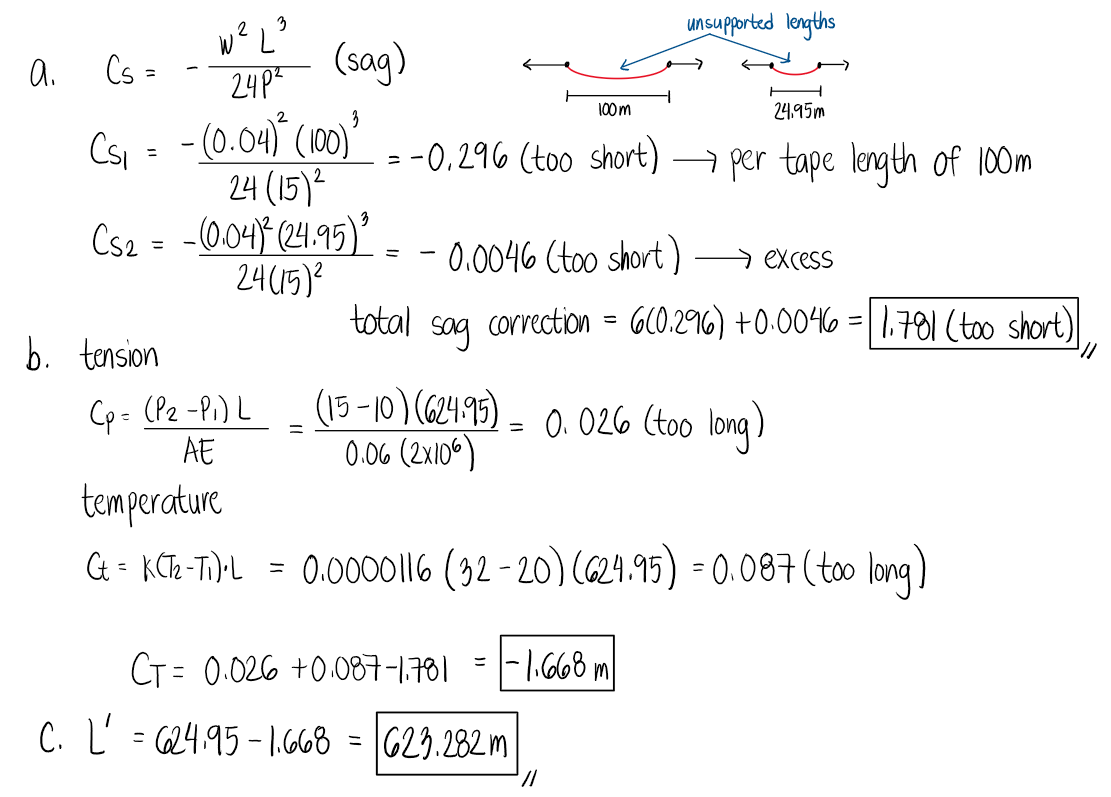 unsupported lengths
a. Cs = - w² L³ / 24P² (sag)
100m 24.95m
Cs1 = -(0.04)² (100)³ / 24 (15)² = -0.296 (too short) → per tape length of 100m
Cs2 = -(0.04)² (24.95)³ / 24(15)² = - 0.0046 (too short) → excess
total sag correction = 6(0.296) + 0.0046 = 1.781 (too short) //
b. tension
Cp = (P2 - P1) L / AE = (15 - 10) (624.95) / 0.06 (2x10⁶) = 0.026 (too long)
temperature
Ct = K(T2 - T1)·L = 0.0000116 (32 - 20) (624.95) = 0.087 (too long)
CT = 0.026 + 0.087 - 1.781 = -1.668 m
c. L' = 624.95 - 1.668 = 623.282 m //